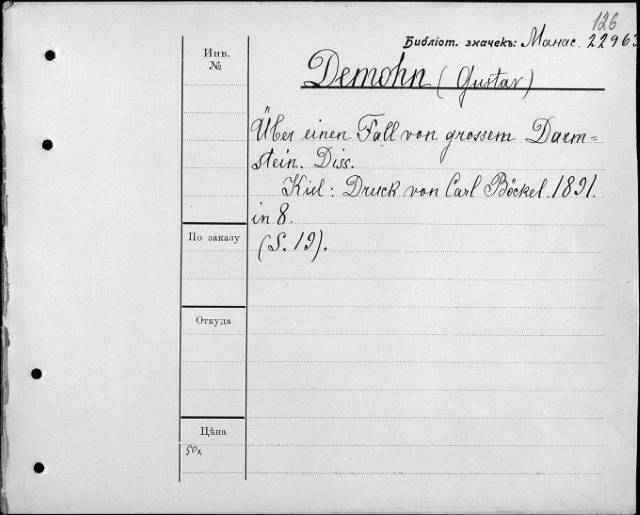 126
Библіот. значекъ: Манас. 22963
Инв.
№
Demohn (Gustav)
Über einen Fall von grossem Darm=
stein. Diss.
Kiel: Druck von Carl Böckel. 1891.
in 8.
(S. 19).
По заказу
Откуда
Цѣна
50к